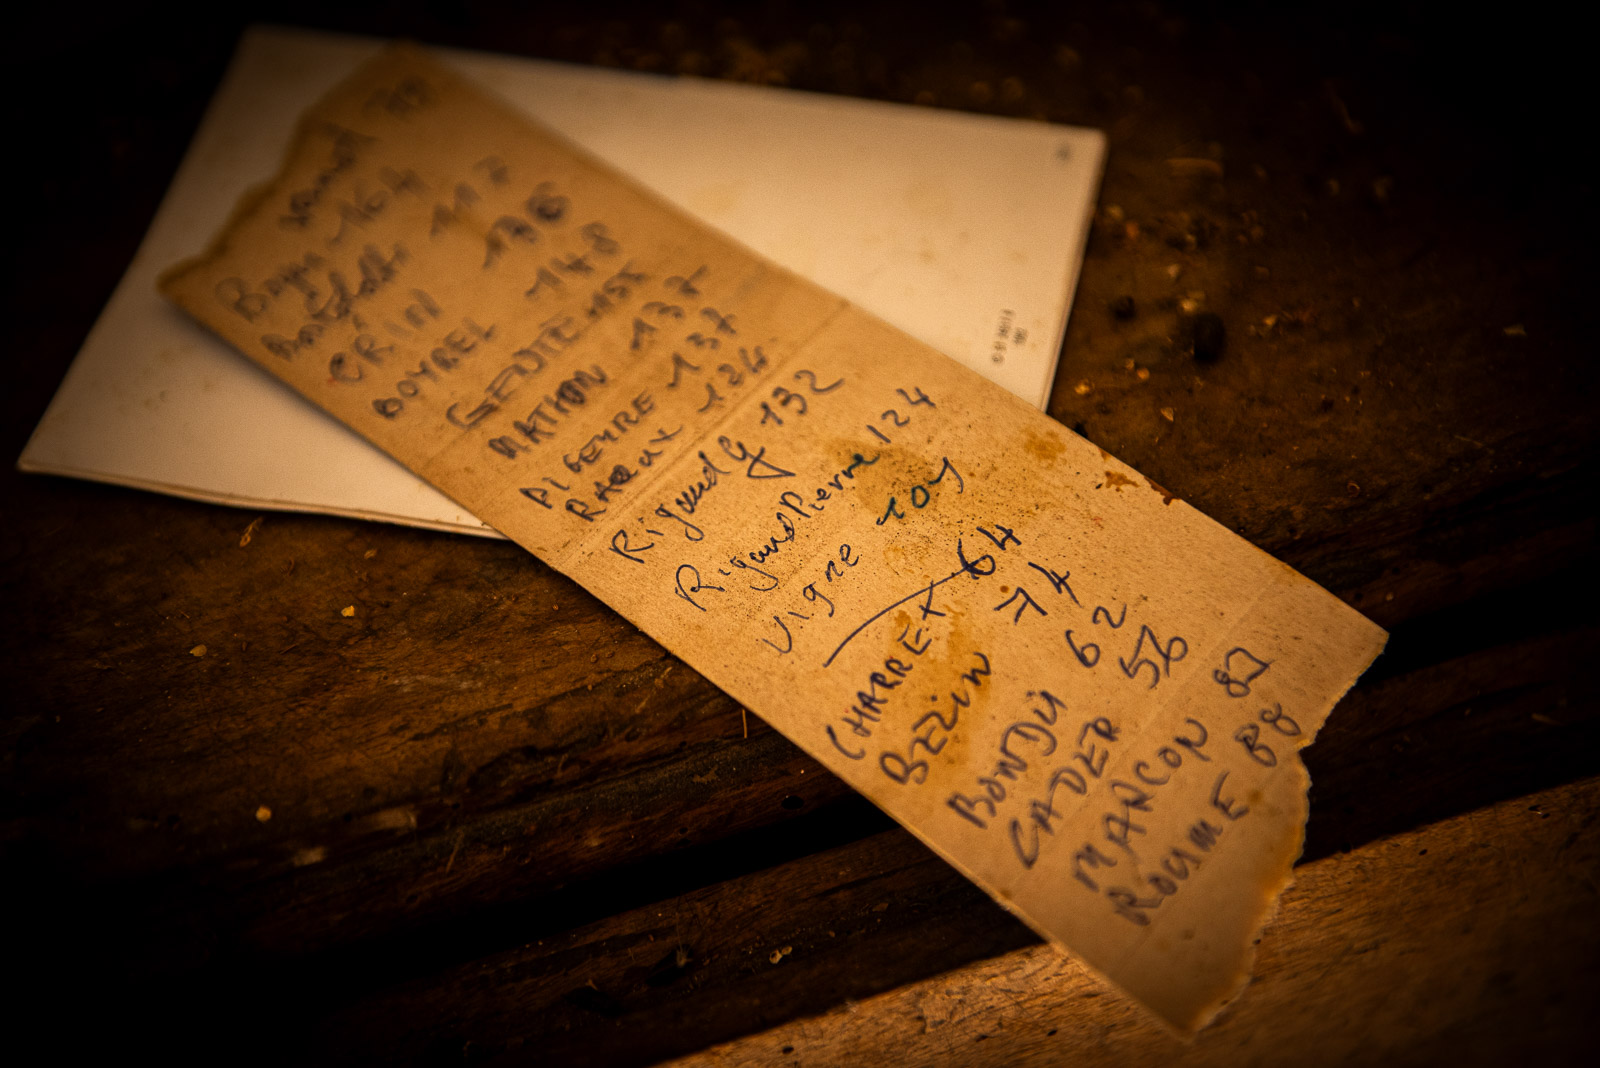 164
117
CRIN 176
BOYREL 148
GENTE 155
MATHON 137
PIGEYRE 137
RAROX 124
Rigaud G 132
Rigaud Pierre 124
Vigne 107
CHARREX 64
BEZIN 74
BONDU 62
CADER 56
MARCON 87
ROUME 88